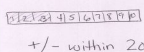 1 2 3 4 5 6 7 8 9 10
+/- within 20